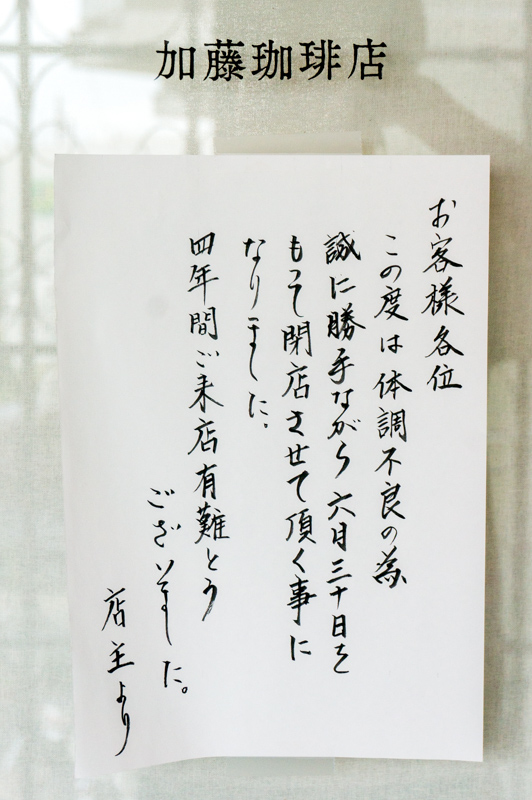 加藤珈琲店
お客様各位
この度は体調不良の為
誠に勝手ながら六月三十日を
もって閉店させて頂く事に
なりました.
四年間ご来店有難とう
ございました。
店主より